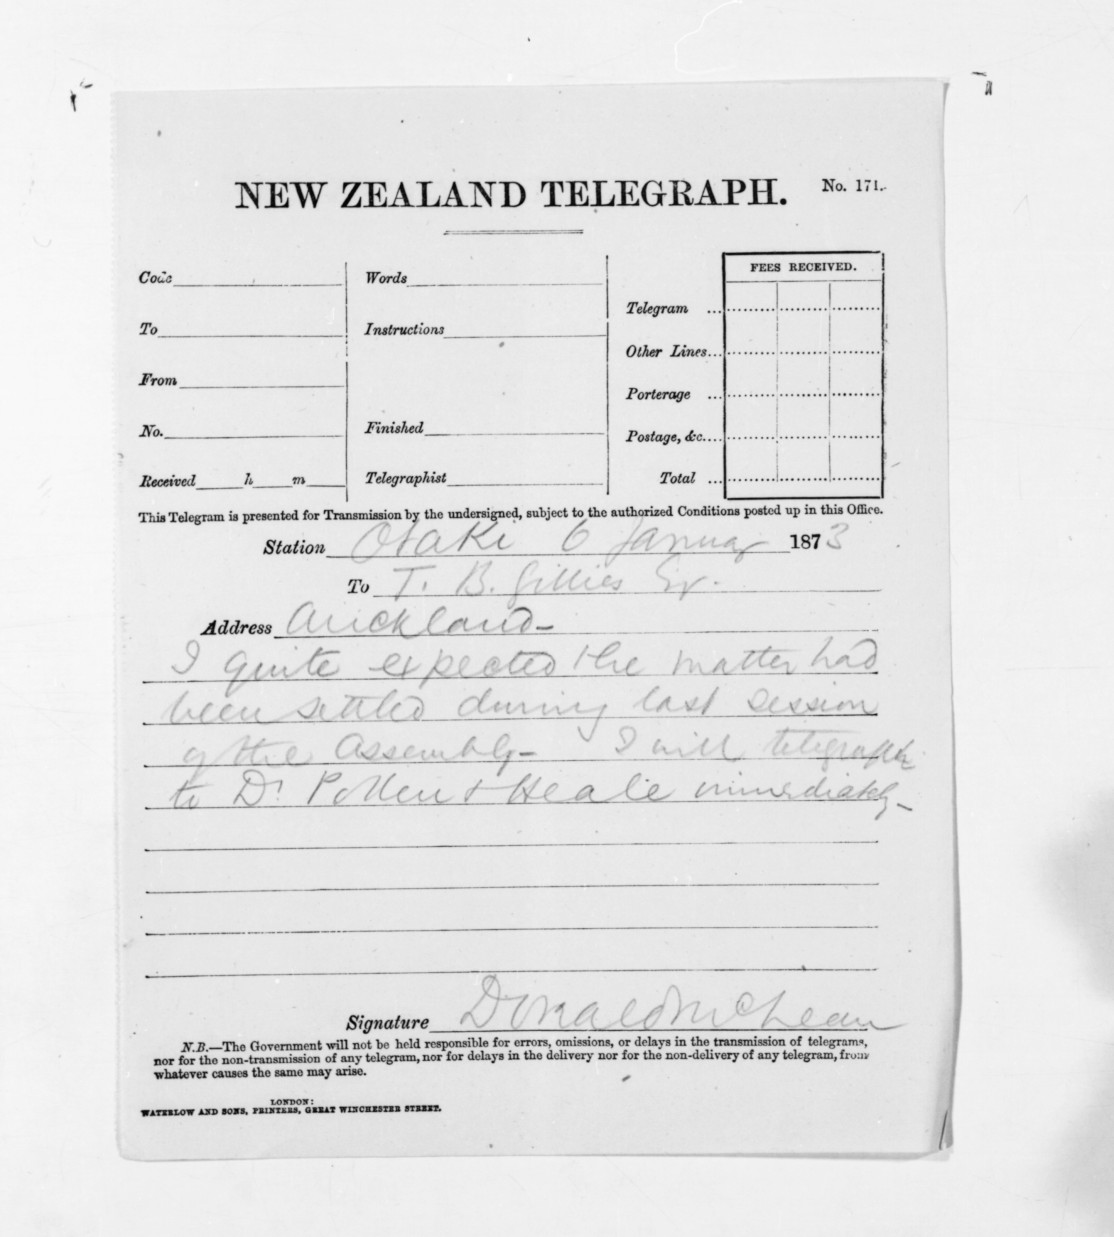 NEW ZEALAND TELEGRAPH. No. 171.
Code
To
From
No.
Received h m
Words
Instructions
Finished
Telegraphist
FEES RECEIVED.
Telegram ...
Other Lines...
Porterage ...
Postage, &c....
Total ...
This Telegram is presented for Transmission by the undersigned, subject to the authorized Conditions posted up in this Office.
Station Otaki 6 January 1873
To T. B. Gillies Esq.
Address Auckland-
I quite expected the matter had
been settled during last session
of the Assembly- I will telegraph
to Dr Pollen & Heale immediately-
Signature Donald McLean
N.B.—The Government will not be held responsible for errors, omissions, or delays in the transmission of telegrams,
nor for the non-transmission of any telegram, nor for delays in the delivery nor for the non-delivery of any telegram, from
whatever causes the same may arise.
LONDON:
WATERLOW AND SONS, PRINTERS, GREAT WINCHESTER STREET.